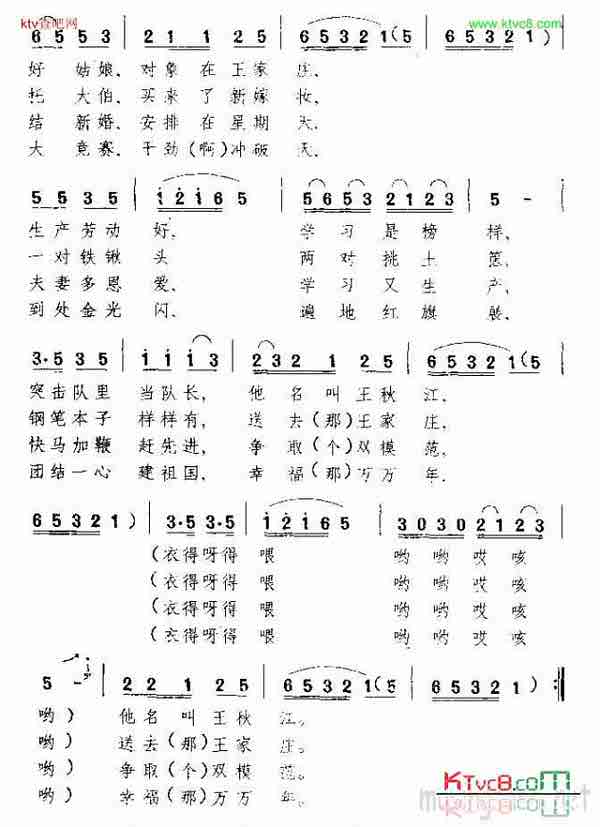 ktv查吧网
www.ktvc8.com
6 5 5 3 | 2 1 1 2 5 | 6 5 3 2 1 (5 | 6 5 3 2 1) |
好 姑 娘、对 象 在 王 家 庄、
托 大 伯、买 来 了 新 嫁 妆、
结 新 婚、安 排 在 星 期 天、
大 竞 赛、干 劲 (啊) 冲 破 天、
5 5 3 5 | i 2 i 6 5 | 5 6 5 3 2 1 2 3 | 5 - |
生 产 劳 动 好、 学 习 是 榜 样、
一 对 铁 锹 头 两 对 挑 土 筐、
夫 妻 多 恩 爱、 学 习 又 生 产、
到 处 金 光 闪、 遍 地 红 旗 展、
3·5 3 5 | i i i 3 | 2 3 2 1 2 5 | 6 5 3 2 1 (5 |
突 击 队 里 当 队 长、 他 名 叫 王 秋 江、
钢 笔 本 子 样 样 有、 送 去 (那) 王 家 庄、
快 马 加 鞭 赶 先 进、 争 取 (个) 双 模 范、
团 结 一 心 建 祖 国、 幸 福 (那) 万 万 年、
6 5 3 2 1) | 3·5 3·5 | i 2 i 6 5 | 3 0 3 0 2 1 2 3 |
(衣 得 呀 得 喂 哟 哟 哎 咳
(衣 得 呀 得 喂 哟 哟 哎 咳
(衣 得 呀 得 喂 哟 哟 哎 咳
(衣 得 呀 得 喂 哟 哟 哎 咳
5 - | 2 2 1 2 5 | 6 5 3 2 1 (5 | 6 5 3 2 1) :‖
哟) 他 名 叫 王 秋 江。
哟) 送 去 (那) 王 家 庄。
哟) 争 取 (个) 双 模 范。
哟) 幸 福 (那) 万 万 年。
KTvc8.com